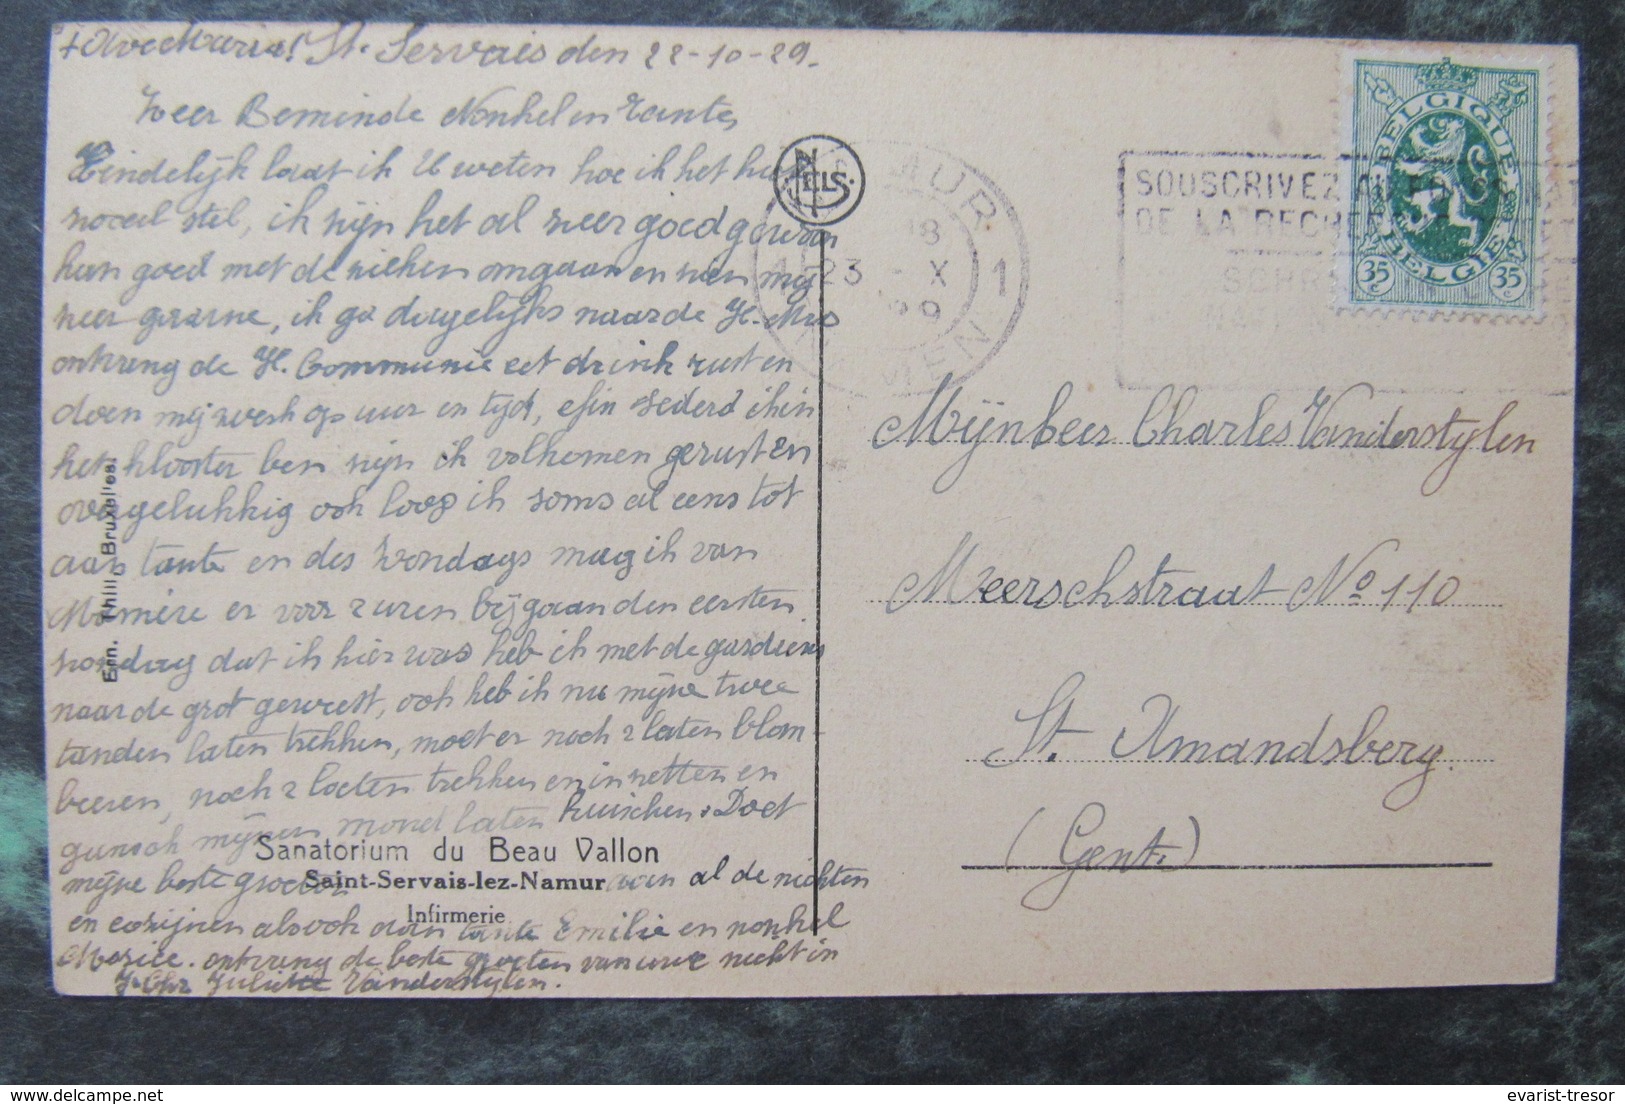 + Ave Maria! St. Servais den 22-10-29.
Zeer Beminde Nonkel en Tante,
Eindelijk laat ik U weten hoe ik het hier
stel, ik zijn het al zeer goed gewoon
kan goed met de zieken omgaan en zien mij
zeer gaarne, ik ga dagelijks naar de H. Mis
ontvang de H. Communie eet drink rust en
doen mij werk op uur en tijd, efin sederd ik in
het klooster ben zijn ik volkomen gerust en
overgelukkig ook loop ik soms al eens tot
aan tante en des zondags mag ik van
Mamère er voor 2 uren bij gaan den eersten
zondag dat ik hier was heb ik met de gardiens
naar de grot geweest, ook heb ik nu mijne twee
tanden laten trekken, moet er noch 2 laten blom-
beeren, noch 2 laten trekken en inzetten en
gansch mijnen mond laten kuischen. Doet
mijne beste groeten aan al de nichten
en cozijnen alsook aan tante Emilie en nonkel
Marice. ontvang de beste groeten van uwe nicht in
J. Chr Juliette Vanderstylen.
Ern. Thill, Bruxelles.
NELS
Sanatorium du Beau Vallon
Saint-Servais-lez-Namur
Infirmerie
NAMUR 1
18
23 X
29
SOUSCRIVEZ AU
DE LA RECHER
BELGIQUE
BELGIË
35 c 35 c
Mijnheer Charles Vanderstylen
Meerschstraat No 110
St. Amandsberg.
(Gent.)
evarist-tresor